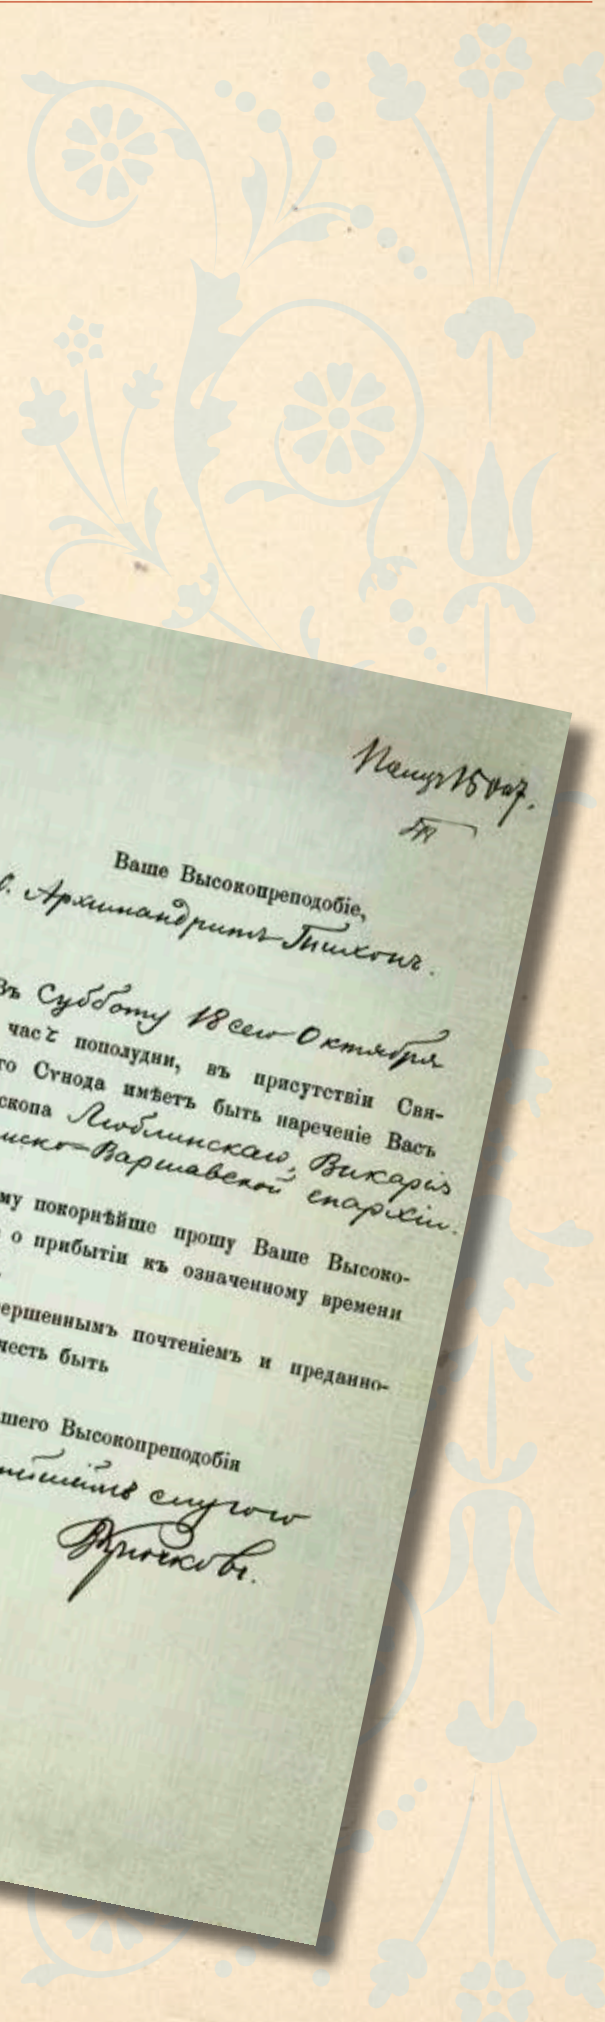 Ваше Высокопреподобіе,
Архимандритъ Тихонъ.
Въ Субботу 18 сего Октября
часъ пополудни, въ присутствіи Свя-
го Сѵнода имѣетъ быть нареченіе Васъ
скопа Люблинскаго, Викарія
мско-Варшавской епархіи.
му покорнѣйше прошу Ваше Высоко-
о прибытіи къ означенному времени
ершеннымъ почтеніемъ и преданно-
честь быть
шего Высокопреподобія
слугою
Крючковъ.